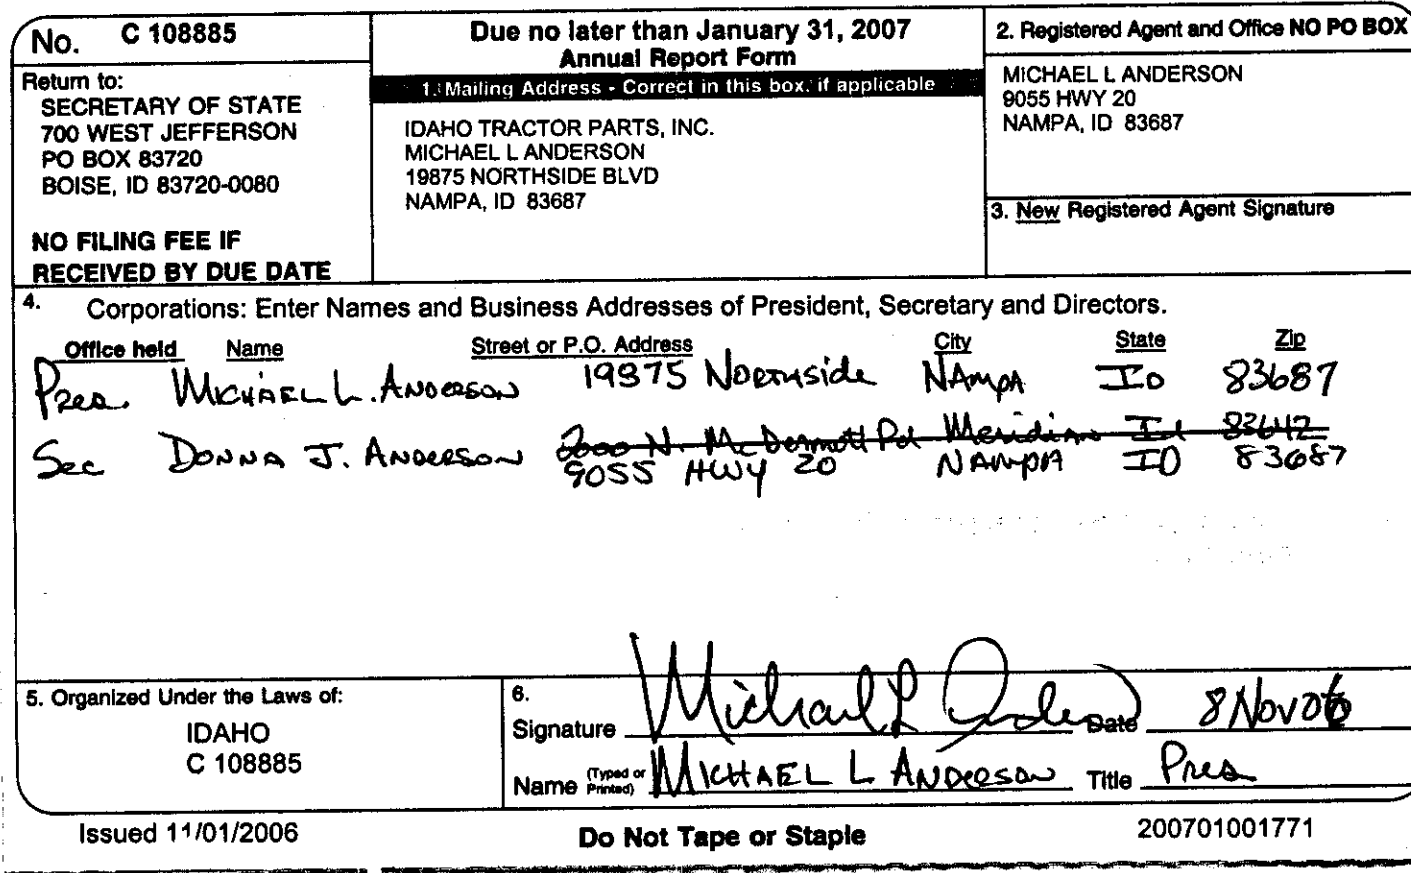 No. C 108885
Return to:
SECRETARY OF STATE
700 WEST JEFFERSON
PO BOX 83720
BOISE, ID 83720-0080
NO FILING FEE IF
RECEIVED BY DUE DATE
Due no later than January 31, 2007
Annual Report Form
1. Mailing Address - Correct in this box, if applicable
IDAHO TRACTOR PARTS, INC.
MICHAEL L ANDERSON
19875 NORTHSIDE BLVD
NAMPA, ID 83687
2. Registered Agent and Office NO PO BOX
MICHAEL L ANDERSON
9055 HWY 20
NAMPA, ID 83687
3. New Registered Agent Signature
4. Corporations: Enter Names and Business Addresses of President, Secretary and Directors.
Office held Name Street or P.O. Address City State Zip
Pres. MICHAEL L. ANDERSON 19875 Northside NAMPA ID 83687
Sec DONNA J. ANDERSON 2000 N. McDermott Rd Meridian Id 83642
9055 HWY 20 NAMPA ID 83687
5. Organized Under the Laws of:
IDAHO
C 108885
6.
Signature Michael L Anderson Date 8 Nov 06
Name (Typed or Printed) MICHAEL L ANDERSON Title Pres
Issued 11/01/2006
Do Not Tape or Staple
200701001771